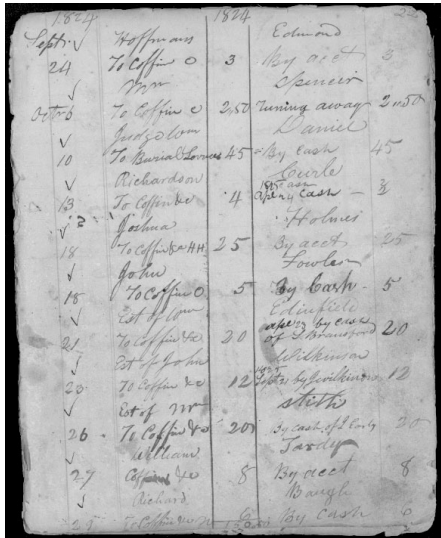 1824 1824 22
Septr. Hoffmans Edmond
24 To Coffin C 3 By acct 3
Mr Spencer
Octr 6 To Coffin C 2,50 Runing away 2,50
Judge Wm Daniel
10 To Burial 45 By Cash 45
Richardson Curle
13 To Coffin &c 4 Cash
? Joshua Holmes
18 To Coffin &c HH 25 By acct 25
John Fowler
18 To Coffin C 5 By Cash 5
Est of Wm
21 To Coffin &c 20 by cash of 20
Est of John Wilkinson
23 To Coffin &c 12 by Wilkinson 12
Est of Mr Stith
26 To Coffin &c 20 By cash of Early 20
William Tardy
27 Coffin &c 8 By acct 8
Richard Baugh
To Coffin &c By Cash 6